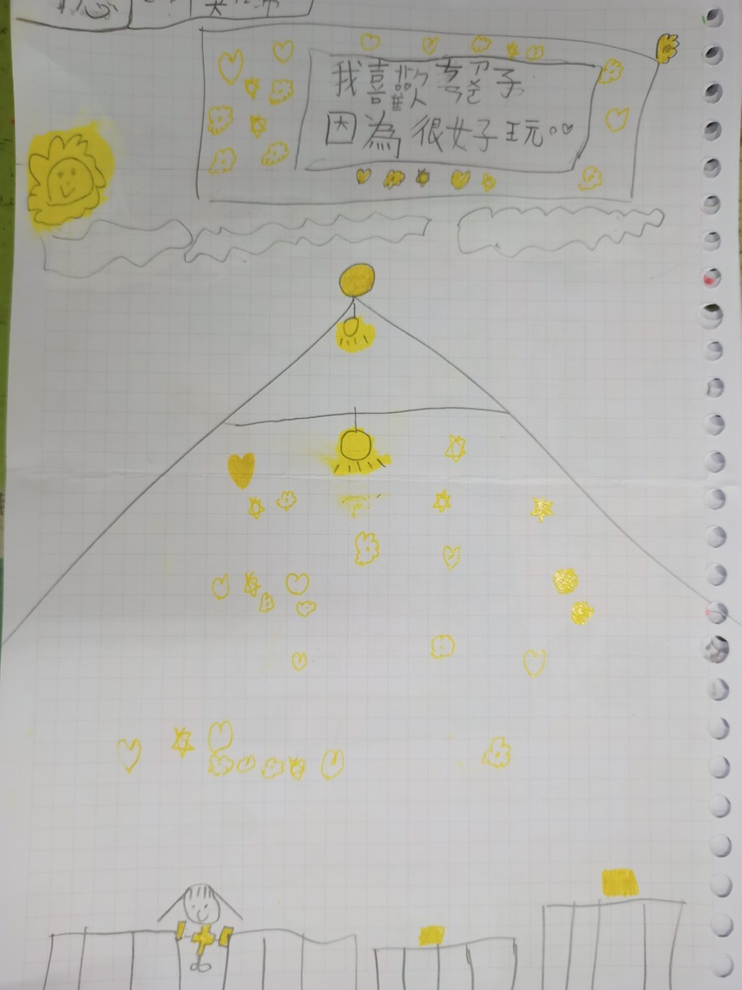 我喜歡爸子
因為很好玩。